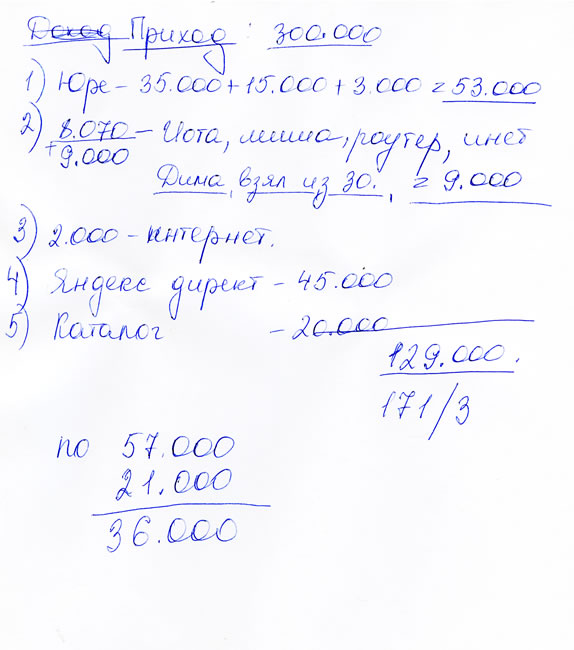 Доход Приход : 300.000
1) Юре - 35.000 + 15.000 + 3.000 = 53.000
2) 8.070 - Йота, миша, роутер, инет
+ 9.000
Дима, взял из 30. , = 9.000
3) 2.000 - интернет.
4) Яндекс директ - 45.000
5) Каталог - 20.000
129.000.
171/3
по 57.000
21.000
36.000